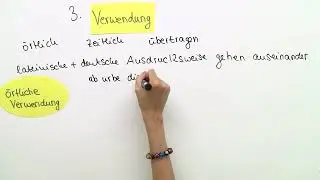 3. Verwendung
örtlich zeitlich übertragen
lateinische + deutsche Ausdrucksweise gehen auseinander
örtliche Verwendung
ab urbe di